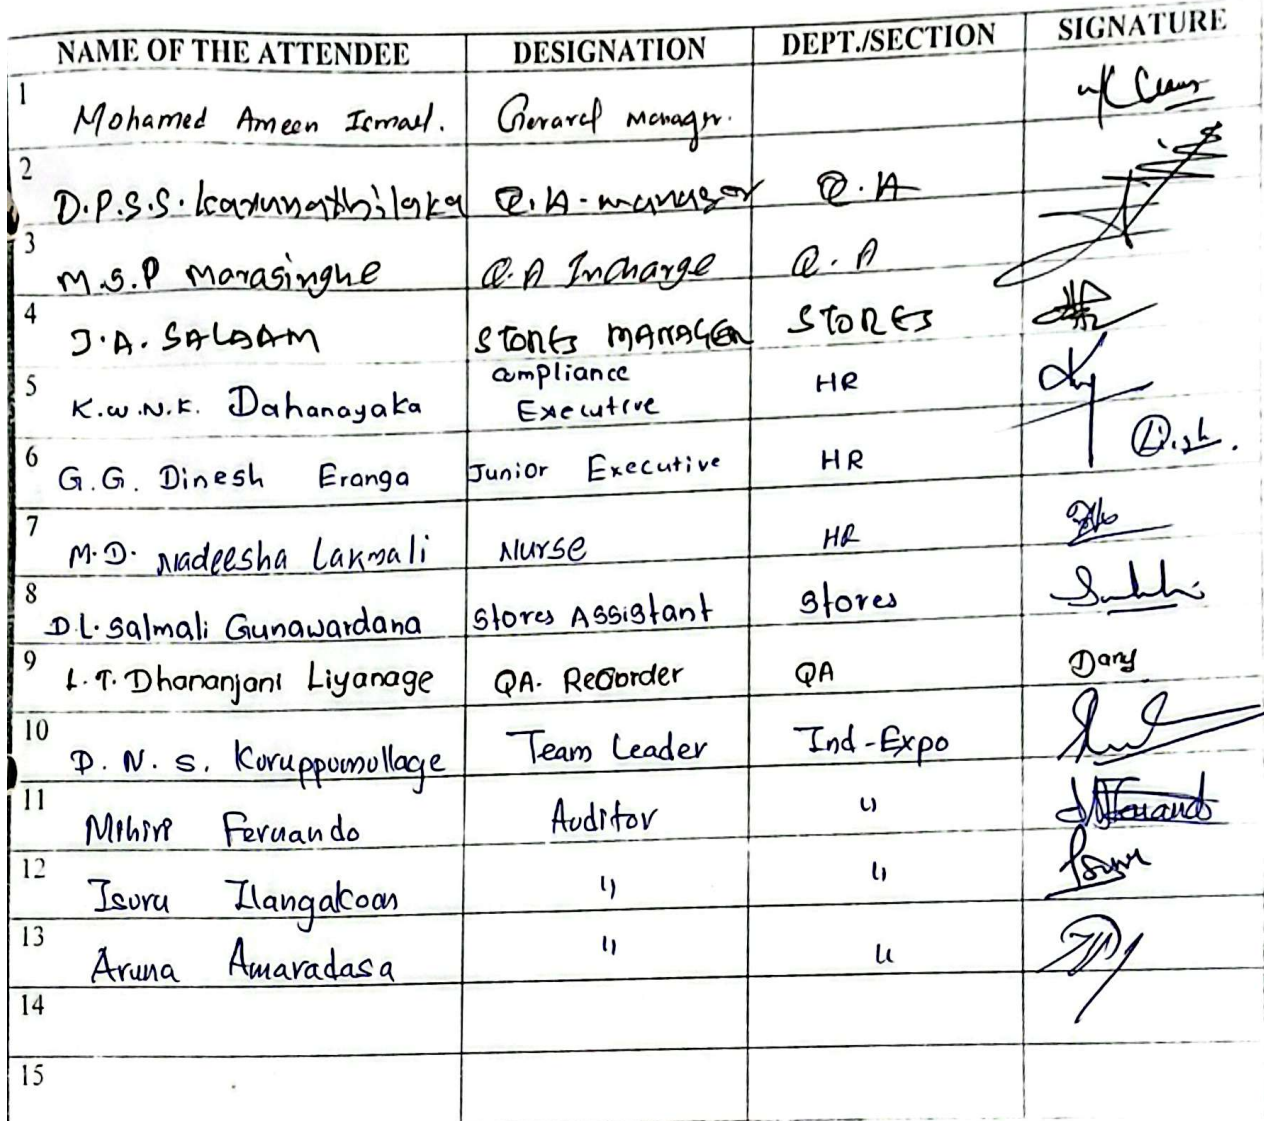 NAME OF THE ATTENDEE DESIGNATION DEPT./SECTION SIGNATURE
1 Mohamed Ameen Ismael. General Manager.
2 D.P.S.S. karunathilaka Q.A. manager Q.A
3 M.S.P Marasinghe Q.A Incharge Q.A
4 J.A. SALAAM STORES MANAGER STORES
5 K.W.N.K. Dahanayaka compliance Executive HR
6 G.G. Dinesh Eranga Junior Executive HR
7 M.D. Nadeesha Lakmali Nurse HR
8 D.L. Salmali Gunawardana Stores Assistant Stores
9 L.T. Dhananjani Liyanage QA. Recorder QA
10 D.N.S. Koruppumullage Team Leader Ind-Expo
11 Mihiri Fernando Auditor "
12 Isuru Ilangakoon " "
13 Aruna Amaradasa " "
14
15